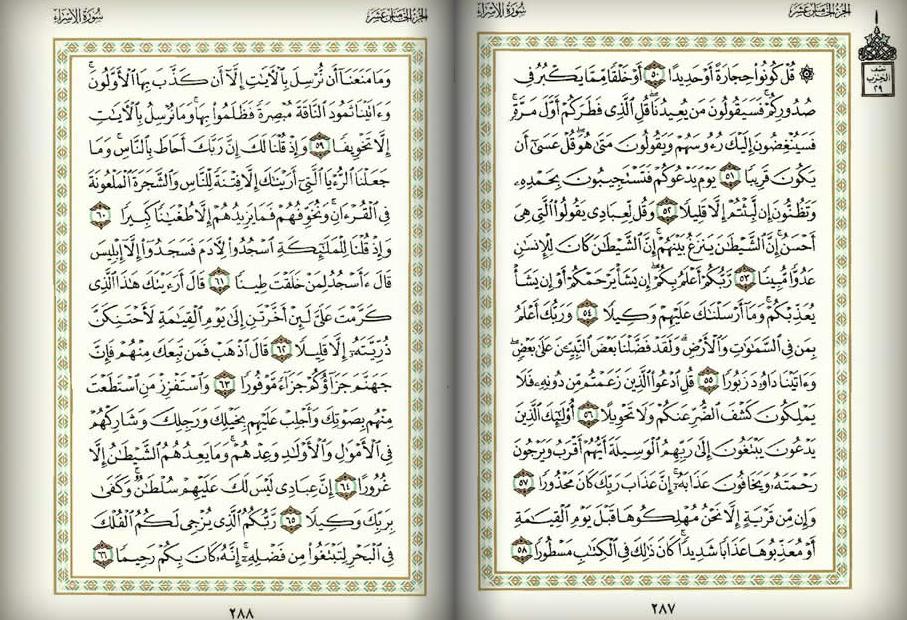 سُورَةُ الإِسْرَاءِ
الجُزْءُ الخَامِسَ عَشَرَ
نصف
الحزب
٢٩
۞ قُلْ كُونُوا۟ حِجَارَةً أَوْ حَدِيدًا ٥٠ أَوْ خَلْقًا مِّمَّا يَكْبُرُ فِى
صُدُورِكُمْ ۚ فَسَيَقُولُونَ مَن يُعِيدُنَا ۖ قُلِ ٱلَّذِى فَطَرَكُمْ أَوَّلَ مَرَّةٍ ۚ
فَسَيُنْغِضُونَ إِلَيْكَ رُءُوسَهُمْ وَيَقُولُونَ مَتَىٰ هُوَ ۖ قُلْ عَسَىٰٓ أَن
يَكُونَ قَرِيبًا ٥١ يَوْمَ يَدْعُوكُمْ فَتَسْتَجِيبُونَ بِحَمْدِهِۦ
وَتَظُنُّونَ إِن لَّبِثْتُمْ إِلَّا قَلِيلًا ٥٢ وَقُل لِّعِبَادِى يَقُولُوا۟ ٱلَّتِى هِىَ
أَحْسَنُ ۚ إِنَّ ٱلشَّيْطَـٰنَ يَنزَغُ بَيْنَهُمْ ۚ إِنَّ ٱلشَّيْطَـٰنَ كَانَ لِلْإِنسَـٰنِ
عَدُوًّا مُّبِينًا ٥٣ رَّبُّكُمْ أَعْلَمُ بِكُمْ ۖ إِن يَشَأْ يَرْحَمْكُمْ أَوْ إِن يَشَأْ
يُعَذِّبْكُمْ ۚ وَمَآ أَرْسَلْنَـٰكَ عَلَيْهِمْ وَكِيلًا ٥٤ وَرَبُّكَ أَعْلَمُ
بِمَن فِى ٱلسَّمَـٰوَٰتِ وَٱلْأَرْضِ ۗ وَلَقَدْ فَضَّلْنَا بَعْضَ ٱلنَّبِيِّـۧنَ عَلَىٰ بَعْضٍ ۖ
وَءَاتَيْنَا دَاوُۥدَ زَبُورًا ٥٥ قُلِ ٱدْعُوا۟ ٱلَّذِينَ زَعَمْتُم مِّن دُونِهِۦ فَلَا
يَمْلِكُونَ كَشْفَ ٱلضُّرِّ عَنكُمْ وَلَا تَحْوِيلًا ٥٦ أُو۟لَـٰٓئِكَ ٱلَّذِينَ
يَدْعُونَ يَبْتَغُونَ إِلَىٰ رَبِّهِمُ ٱلْوَسِيلَةَ أَيُّهُمْ أَقْرَبُ وَيَرْجُونَ
رَحْمَتَهُۥ وَيَخَافُونَ عَذَابَهُۥٓ ۚ إِنَّ عَذَابَ رَبِّكَ كَانَ مَحْذُورًا ٥٧
وَإِن مِّن قَرْيَةٍ إِلَّا نَحْنُ مُهْلِكُوهَا قَبْلَ يَوْمِ ٱلْقِيَـٰمَةِ
أَوْ مُعَذِّبُوهَا عَذَابًا شَدِيدًا ۚ كَانَ ذَٰلِكَ فِى ٱلْكِتَـٰبِ مَسْطُورًا ٥٨
٢٨٧
سُورَةُ الإِسْرَاءِ
الجُزْءُ الخَامِسَ عَشَرَ
وَمَا مَنَعَنَآ أَن نُّرْسِلَ بِٱلْـَٔايَـٰتِ إِلَّآ أَن كَذَّبَ بِهَا ٱلْأَوَّلُونَ ۚ
وَءَاتَيْنَا ثَمُودَ ٱلنَّاقَةَ مُبْصِرَةً فَظَلَمُوا۟ بِهَا ۚ وَمَا نُرْسِلُ بِٱلْـَٔايَـٰتِ
إِلَّا تَخْوِيفًا ٥٩ وَإِذْ قُلْنَا لَكَ إِنَّ رَبَّكَ أَحَاطَ بِٱلنَّاسِ ۚ وَمَا
جَعَلْنَا ٱلرُّءْيَا ٱلَّتِىٓ أَرَيْنَـٰكَ إِلَّا فِتْنَةً لِّلنَّاسِ وَٱلشَّجَرَةَ ٱلْمَلْعُونَةَ
فِى ٱلْقُرْءَانِ ۚ وَنُخَوِّفُهُمْ فَمَا يَزِيدُهُمْ إِلَّا طُغْيَـٰنًا كَبِيرًا ٦٠
وَإِذْ قُلْنَا لِلْمَلَـٰٓئِكَةِ ٱسْجُدُوا۟ لِـَٔادَمَ فَسَجَدُوٓا۟ إِلَّآ إِبْلِيسَ
قَالَ ءَأَسْجُدُ لِمَنْ خَلَقْتَ طِينًا ٦١ قَالَ أَرَءَيْتَكَ هَـٰذَا ٱلَّذِى
كَرَّمْتَ عَلَىَّ لَئِنْ أَخَّرْتَنِ إِلَىٰ يَوْمِ ٱلْقِيَـٰمَةِ لَأَحْتَنِكَنَّ
ذُرِّيَّتَهُۥٓ إِلَّا قَلِيلًا ٦٢ قَالَ ٱذْهَبْ فَمَن تَبِعَكَ مِنْهُمْ فَإِنَّ
جَهَنَّمَ جَزَآؤُكُمْ جَزَآءً مَّوْفُورًا ٦٣ وَٱسْتَفْزِزْ مَنِ ٱسْتَطَعْتَ
مِنْهُم بِصَوْتِكَ وَأَجْلِبْ عَلَيْهِم بِخَيْلِكَ وَرَجِلِكَ وَشَارِكْهُمْ
فِى ٱلْأَمْوَٰلِ وَٱلْأَوْلَـٰدِ وَعِدْهُمْ ۚ وَمَا يَعِدُهُمُ ٱلشَّيْطَـٰنُ إِلَّا
غُرُورًا ٦٤ إِنَّ عِبَادِى لَيْسَ لَكَ عَلَيْهِمْ سُلْطَـٰنٌ ۚ وَكَفَىٰ
بِرَبِّكَ وَكِيلًا ٦٥ رَّبُّكُمُ ٱلَّذِى يُزْجِى لَكُمُ ٱلْفُلْكَ
فِى ٱلْبَحْرِ لِتَبْتَغُوا۟ مِن فَضْلِهِۦٓ ۚ إِنَّهُۥ كَانَ بِكُمْ رَحِيمًا ٦٦
٢٨٨